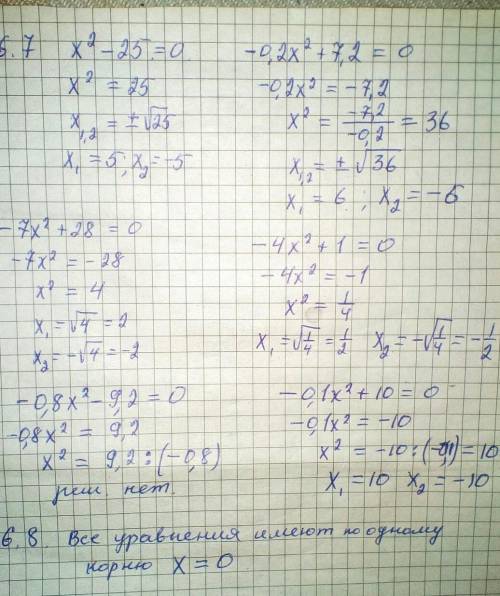 6.7 x² - 25 = 0
x² = 25
x₁,₂ = ±√25
x₁ = 5; x₂ = -5
-0,2x² + 7,2 = 0
-0,2x² = -7,2
x² = -7,2/-0,2 = 36
x₁,₂ = ±√36
x₁ = 6; x₂ = -6
-7x² + 28 = 0
-7x² = -28
x² = 4
x₁ = √4 = 2
x₂ = -√4 = -2
-4x² + 1 = 0
-4x² = -1
x² = 1/4
x₁ = √1/4 = 1/2 x₂ = -√1/4 = -1/2
-0,8x² - 9,2 = 0
-0,8x² = 9,2
x² = 9,2 : (-0,8)
реш. нет.
-0,1x² + 10 = 0
-0,1x² = -10
x² = -10 : (-0,1) = 10
x₁ = 10 x₂ = -10
6.8 Все уравнения имеют по одному
корню x = 0